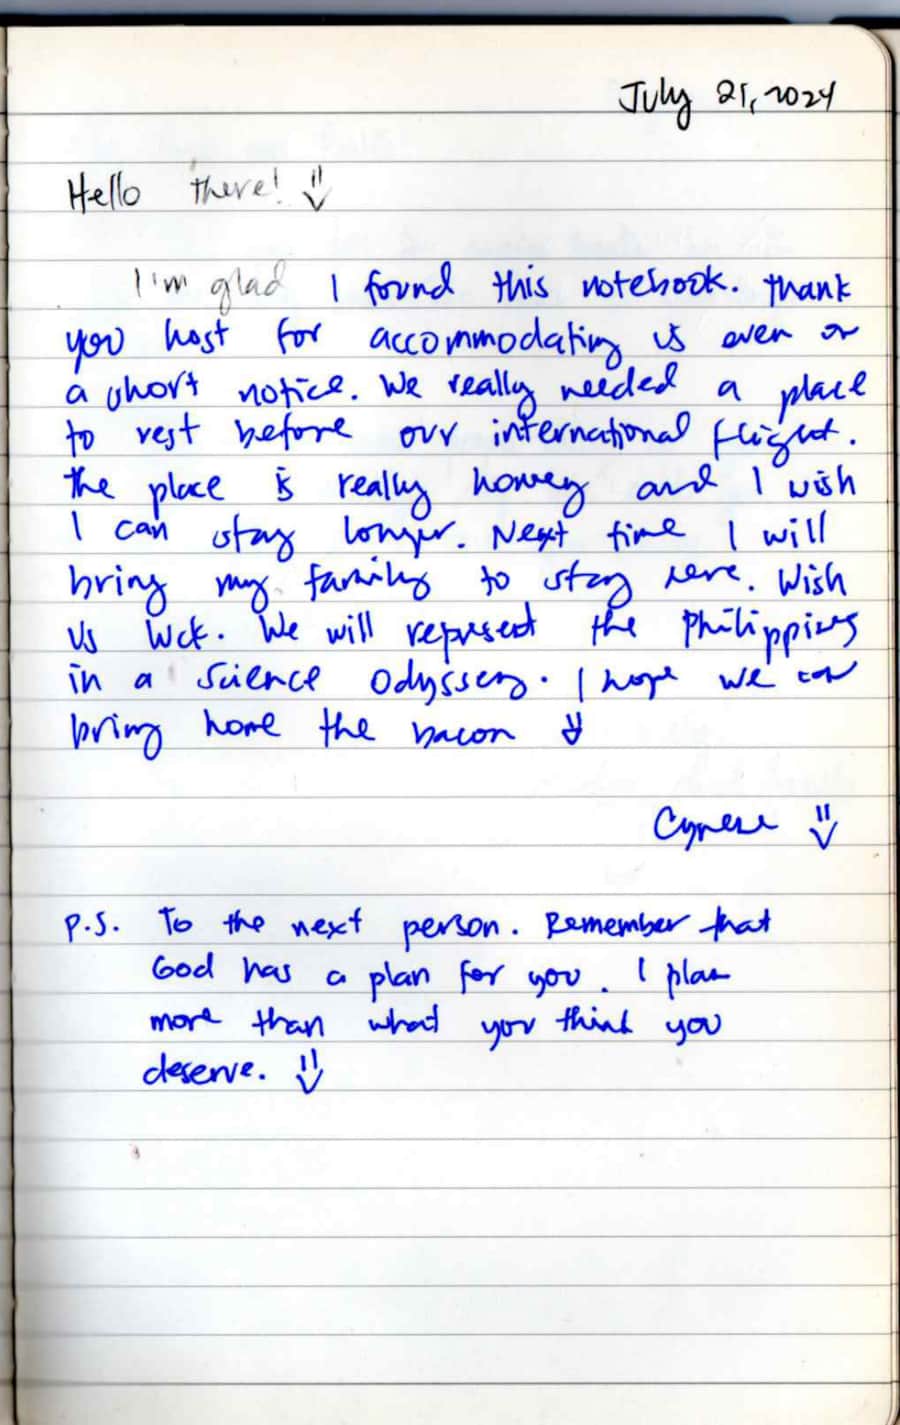 July 21, 2024
Hello there!
I'm glad I found this notebook. Thank
you host for accommodating us even on
a short notice. We really needed a place
to rest before our international flight.
The place is really homey and I wish
I can stay longer. Next time I will
bring my family to stay here. Wish
us luck. We will represent the Philippines
in a Science Odyssey. I hope we can
bring home the bacon
P.S. To the next person. Remember that
God has a plan for you. I plan
more than what you think you
deserve.